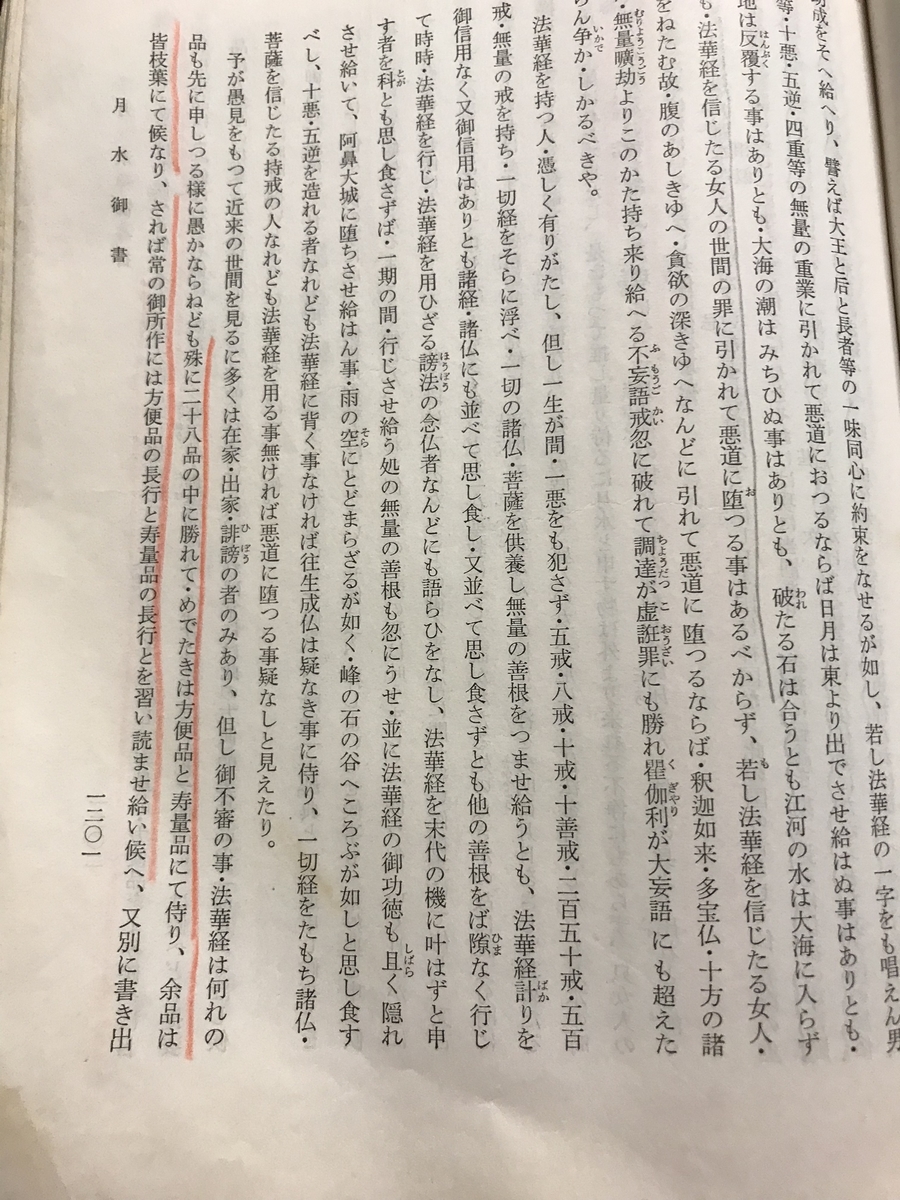 成をそへ給へり、譬えば大王と后と長者等の一味同心に約束をなせるが如し、若し法華経の一字をも唱えん男
等・十悪・五逆・四重等の無量の重業に引かれて悪道におつるならば日月は東より出でさせ給はぬ事はありとも・
地は反覆する事はありとも・大海の潮はみちひぬ事はありとも、破たる石は合うとも江河の水は大海に入らず
も・法華経を信じたる女人の世間の罪に引かれて悪道に堕つる事はあるべからず、若し法華経を信じたる女人・
をねたむ故・腹のあしきゆへ・貪欲の深きゆへなんどに引れて悪道に堕つるならば・釈迦如来・多宝仏・十方の諸
・無量曠劫よりこのかた持ち来り給へる不妄語戒忽に破れて調達が虚誑罪にも勝れ瞿伽利が大妄語にも超えた
らん争か・しかるべきや。
法華経を持つ人・憑しく有りがたし、但し一生が間・一悪をも犯さず・五戒・八戒・十戒・十善戒・二百五十戒・五百
戒・無量の戒を持ち・一切経をそらに浮べ・一切の諸仏・菩薩を供養し無量の善根をつませ給うとも、法華経計りを
御信用なく又御信用はありとも諸経・諸仏にも並べて思し食し・又並べて思し食さずとも他の善根をば隙なく行じ
て時時・法華経を行じ・法華経を用ひざる謗法の念仏者なんどにも語らひをなし、法華経を末代の機に叶はずと申
す者を科とも思し食さずば・一期の間・行じさせ給う処の無量の善根も忽にうせ・並に法華経の御功徳も且く隠れ
させ給いて、阿鼻大城に堕ちさせ給はん事・雨の空にとどまらざるが如く・峰の石の谷へころぶが如しと思し食す
べし、十悪・五逆を造れる者なれども法華経に背く事なければ往生成仏は疑なき事に侍り、一切経をたもち諸仏・
菩薩を信じたる持戒の人なれども法華経を用る事無ければ悪道に堕つる事疑なしと見えたり。
予が愚見をもつて近来の世間を見るに多くは在家・出家・誹謗の者のみあり、但し御不審の事・法華経は何れの
品も先に申しつる様に愚かならねども殊に二十八品の中に勝れて・めでたきは方便品と寿量品にて侍り、余品は
皆枝葉にて候なり、されば常の御所作には方便品の長行と寿量品の長行とを習い読ませ給い候へ、又別に書き出
月水御書
一二〇一